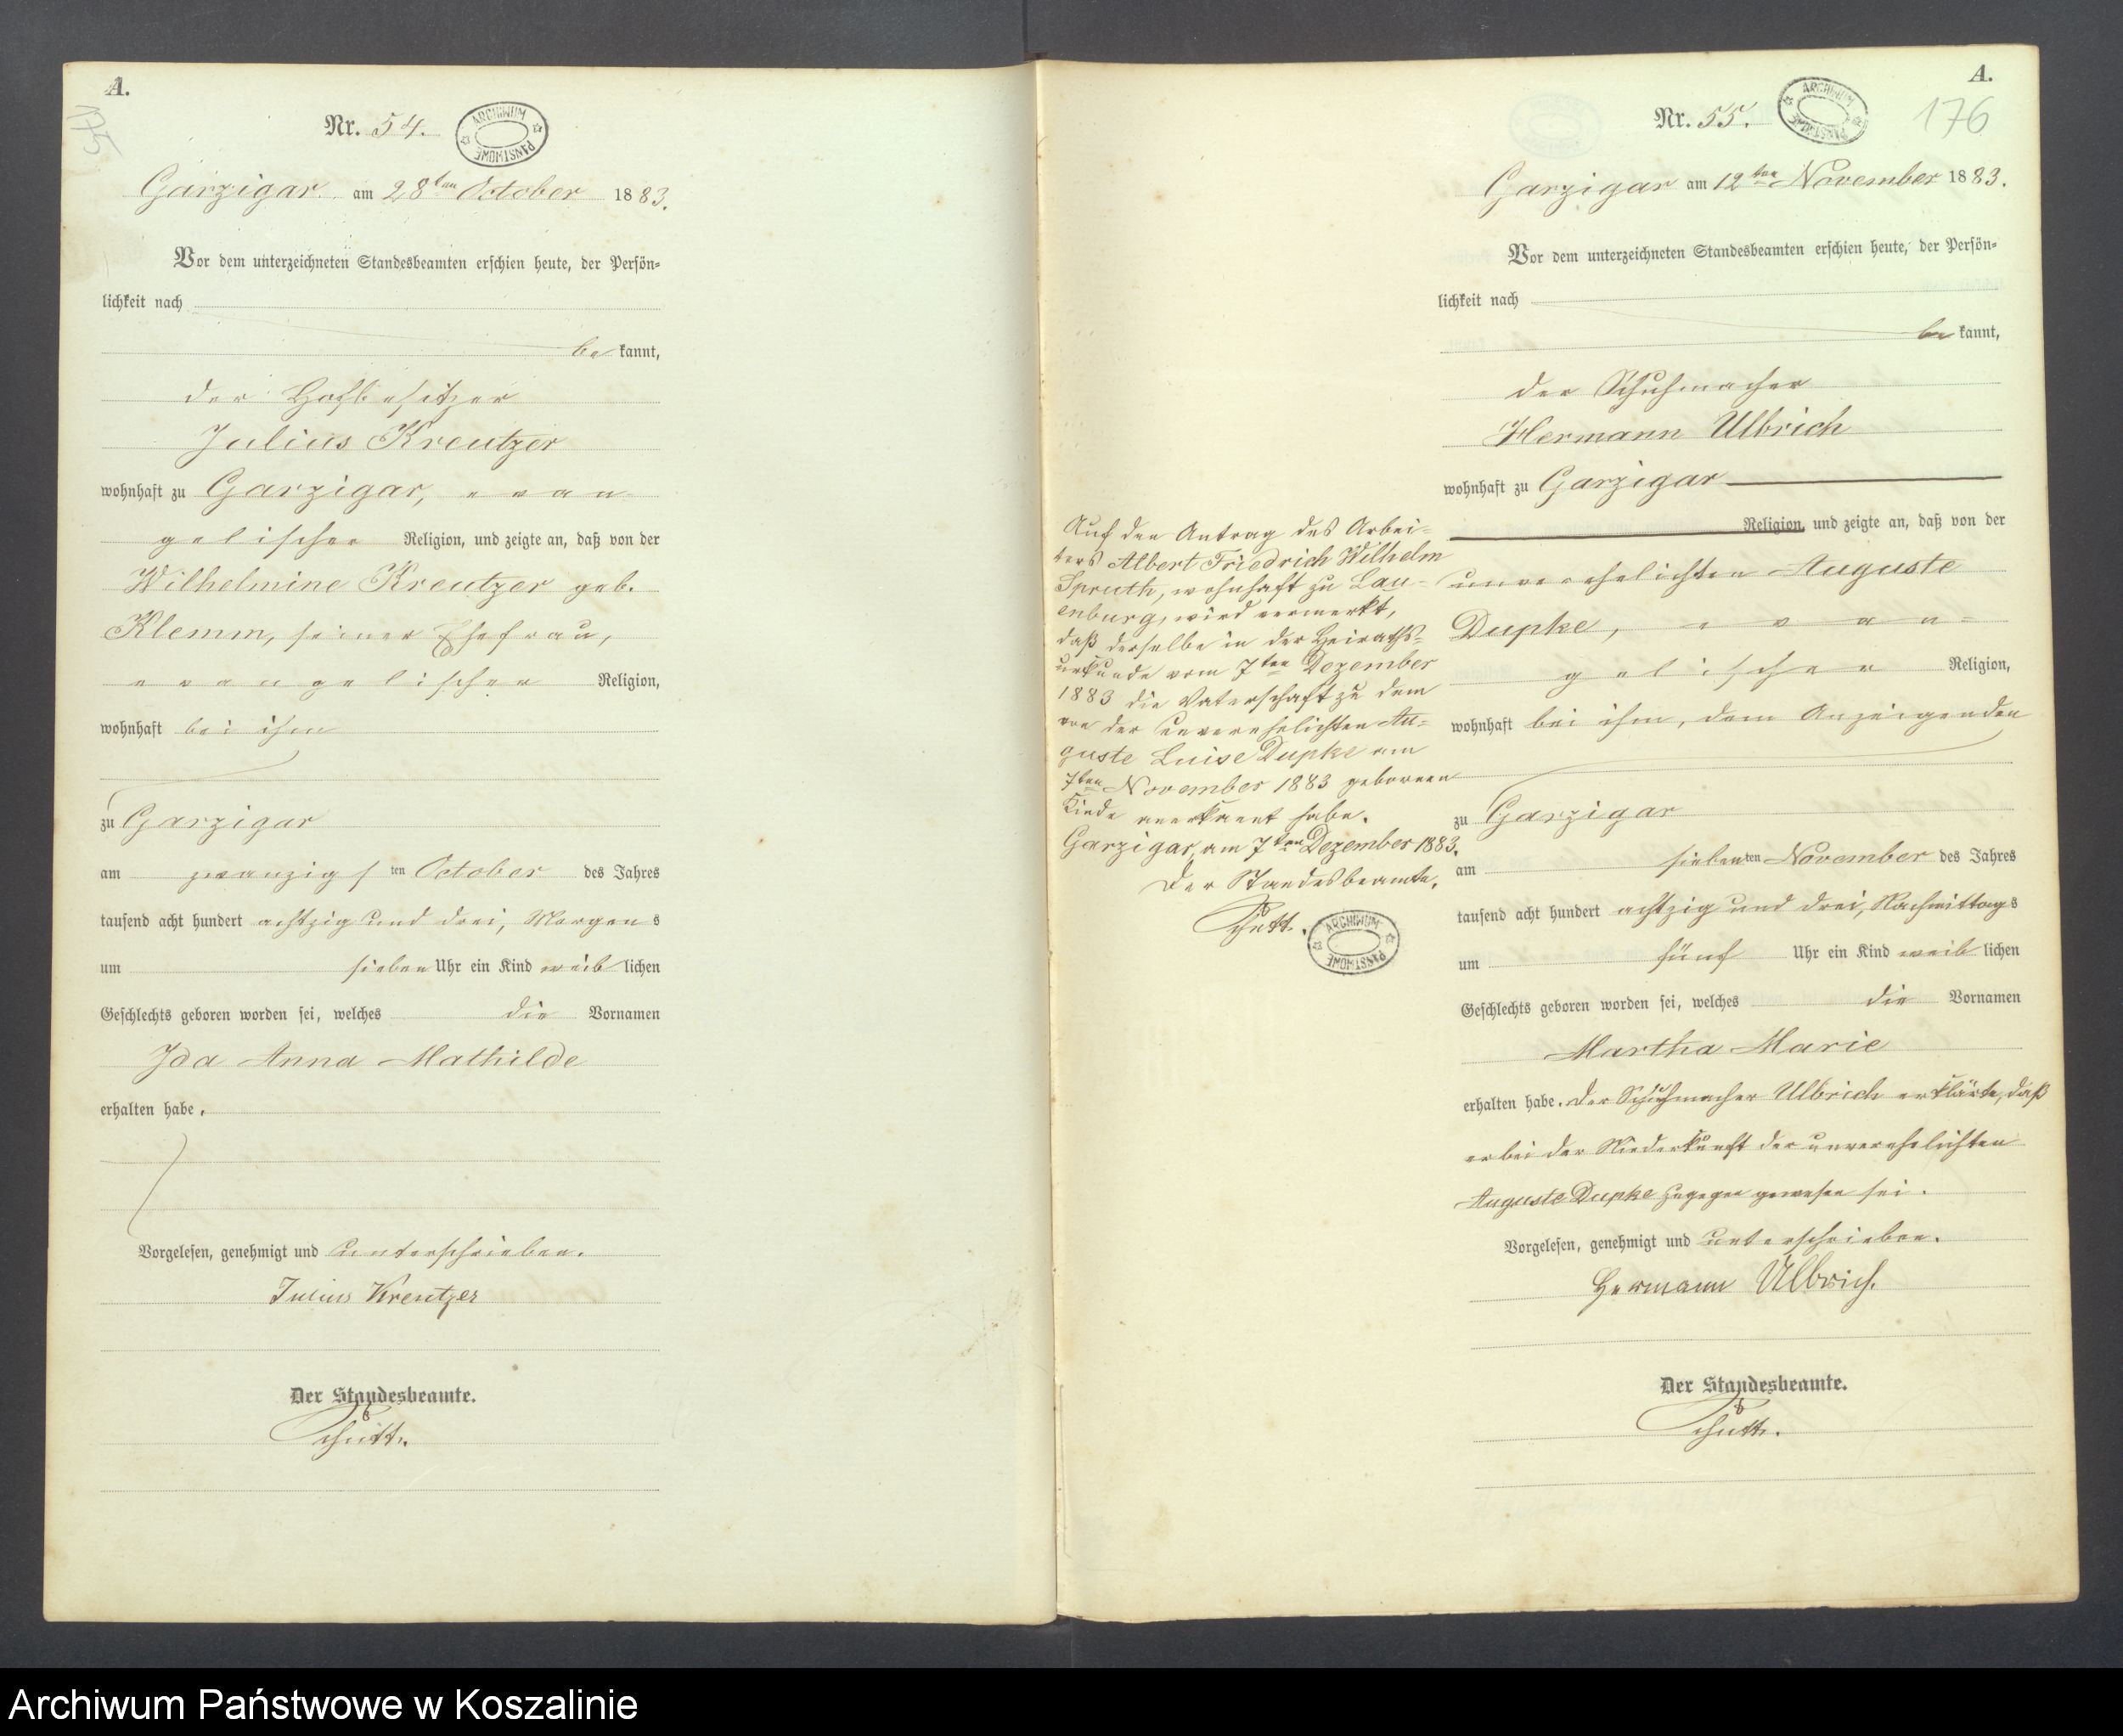 A.
175
Nr. 54.
ARCHIWUM PAŃSTWOWE
Garzigar am 28ten October 1883.
Vor dem unterzeichneten Standesbeamten erschien heute, der Persön=
lichkeit nach
be kannt,
der Hofbesitzer
Julius Kreutzer
wohnhaft zu Garzigar, evan-
gelischer Religion, und zeigte an, daß von der
Wilhelmine Kreutzer geb.
Klemm, seiner Ehefrau,
evangelischer Religion,
wohnhaft bei ihm
zu Garzigar
am zwanzigsten October des Jahres
tausend acht hundert achtzig und drei, Morgens
um sieben Uhr ein Kind weiblichen
Geschlechts geboren worden sei, welches die Vornamen
Ida Anna Mathilde
erhalten habe.
Vorgelesen, genehmigt und unterschrieben.
Julius Kreutzer
Der Standesbeamte.
Schütt.
A.
176
Nr. 55.
ARCHIWUM PAŃSTWOWE
Garzigar am 12ten November 1883.
Vor dem unterzeichneten Standesbeamten erschien heute, der Persön=
lichkeit nach
be kannt,
der Schuhmacher
Hermann Ulbrich
wohnhaft zu Garzigar
Religion, und zeigte an, daß von der
unverehelichten Auguste
Dupke, evan=
gelischer Religion,
wohnhaft bei ihm, dem Anzeigenden
zu Garzigar
am siebenten November des Jahres
tausend acht hundert achtzig und drei, Nachmittags
um fünf Uhr ein Kind weiblichen
Geschlechts geboren worden sei, welches die Vornamen
Martha Marie
erhalten habe. Der Schuhmacher Ulbrich erklärte, daß
er bei der Niederkunft der unverehelichten
Auguste Dupke zugegen gewesen sei.
Vorgelesen, genehmigt und unterschrieben.
Hermann Ulbrich.
Der Standesbeamte.
Schütt.
Auf den Antrag des Arbei=
ters Albert Friedrich Wilhelm
Spruth, wohnhaft zu Lau=
enburg, wird vermerkt,
daß derselbe in der Heiraths=
urkunde vom 7ten Dezember
1883 die Vaterschaft zu dem
von der unverehelichten Au=
guste Luise Dupke am
7ten November 1883 geborenen
Kinde anerkannt habe.
Garzigar, am 7ten Dezember 1883.
Der Standesbeamte.
Schütt.
ARCHIWUM PAŃSTWOWE
Archiwum Państwowe w Koszalinie